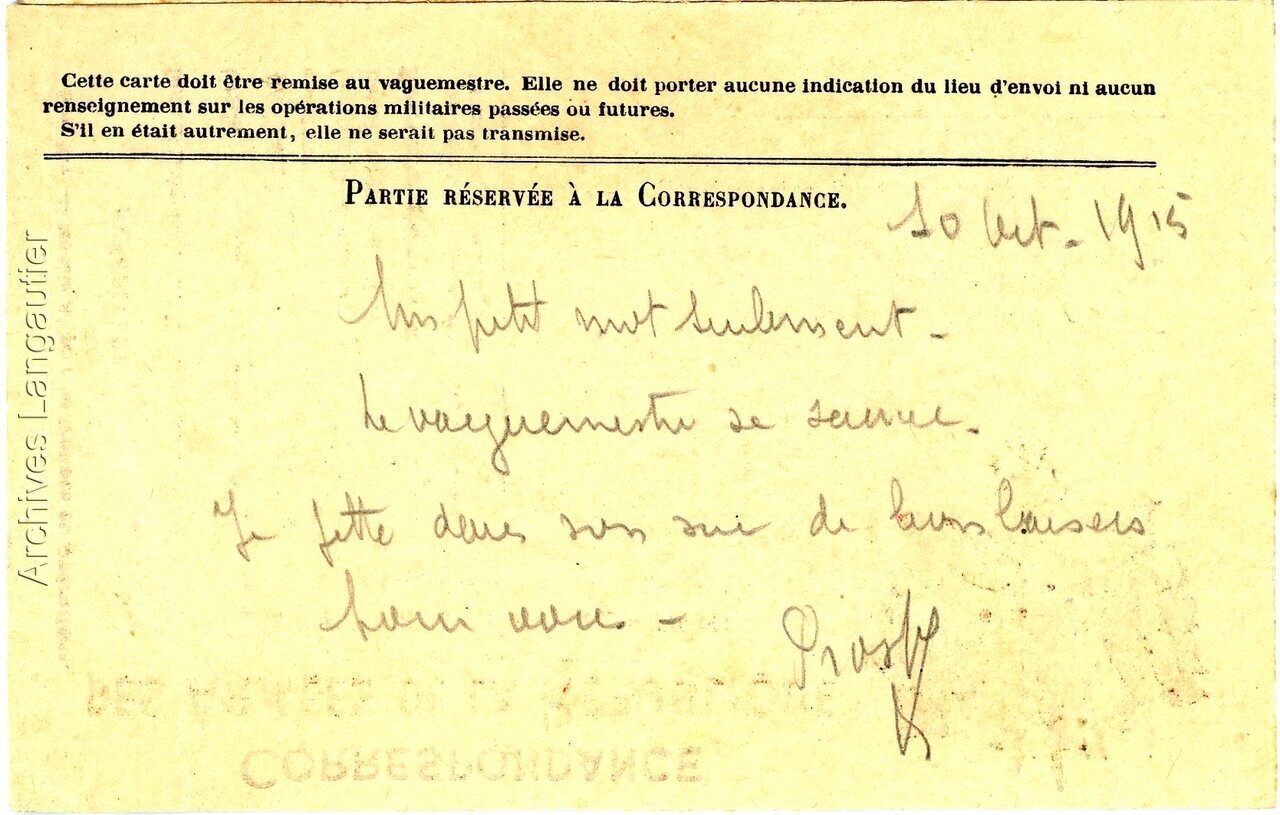 Cette carte doit être remise au vaguemestre. Elle ne doit porter aucune indication du lieu d'envoi ni aucun
renseignement sur les opérations militaires passées ou futures.
S'il en était autrement, elle ne serait pas transmise.
PARTIE RÉSERVÉE À LA CORRESPONDANCE.
10 Oct. 1915
Un petit mot seulement -
Le vaguemestre se sauve.
Je jette dans son sac de bons baisers
pour vous -
Prosp
Archives Langautier
CORRESPONDANCE